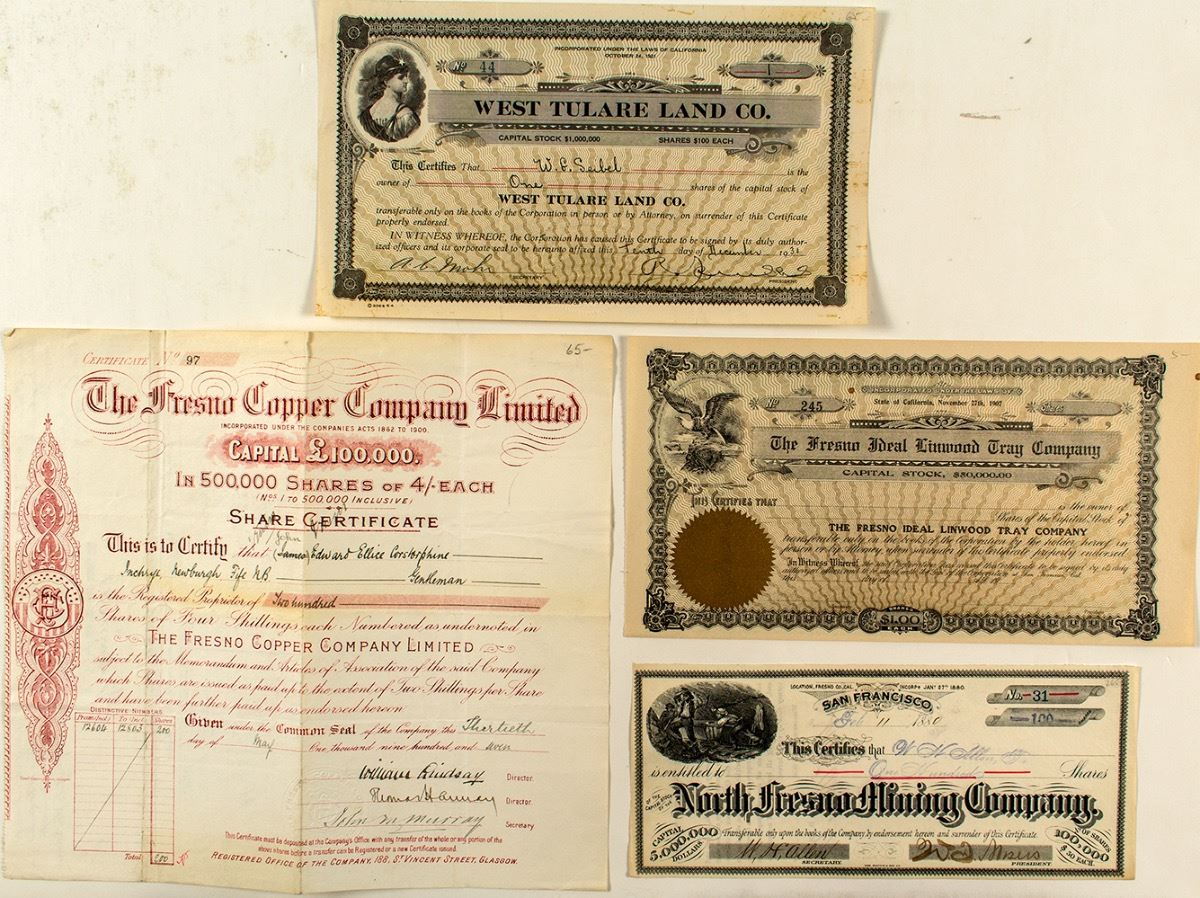 65-
INCORPORATED UNDER THE LAWS OF CALIFORNIA
OCTOBER 24, 1921
No 44
1
WEST TULARE LAND CO.
CAPITAL STOCK $1,000,000 SHARES $100 EACH
This Certifies That W. E. Seibel is the
owner of One shares of the capital stock of
WEST TULARE LAND CO.
transferable only on the books of the Corporation in person or by Attorney, on surrender of this Certificate
properly endorsed.
IN WITNESS WHEREOF, the Corporation has caused this Certificate to be signed by its duly author-
ized officers and its corporate seal to be hereunto affixed this Tenth day of December 1931
SECRETARY
PRESIDENT
65-
CERTIFICATE No 97
The Fresno Copper Company Limited
INCORPORATED UNDER THE COMPANIES ACTS 1862 TO 1900.
CAPITAL £100,000.
IN 500,000 SHARES OF 4/- EACH
(Nos 1 TO 500,000 INCLUSIVE)
SHARE CERTIFICATE
John
This is to Certify that (James) Edward Ellice Corstorphine
Inchrye, Newburgh Fife NB Gentleman
is the Registered Proprietor of Two hundred
Shares of Four Shillings each Numbered as undernoted in
THE FRESNO COPPER COMPANY LIMITED
subject to the Memorandum and Articles of Association of the said Company
which Shares are issued as paid up to the extent of Two Shillings per Share
and have been further paid up as endorsed hereon
DISTINCTIVE NUMBERS
From (Incl.) To (Incl.) Shares
12604 12803 200
Total 200
Given under the Common Seal of the Company this Thirtieth
day of May One thousand nine hundred and seven
William Lindsay Director.
Director.
John M. Murray Secretary
This Certificate must be deposited at the Company's Office with any transfer of the whole or any portion of the
above shares before a transfer can be Registered or a new Certificate issued.
REGISTERED OFFICE OF THE COMPANY, 188, ST VINCENT STREET, GLASGOW.
5-
INCORPORATED UNDER THE LAWS OF
State of California, November 27th, 1907
No 245
Shares
The Fresno Ideal Linwood Tray Company
CAPITAL STOCK, $50,000.00
THIS CERTIFIES THAT
is the owner of
Shares of the Capital Stock of
THE FRESNO IDEAL LINWOOD TRAY COMPANY
transferable only on the books of the Corporation by the holder hereof in
person or by Attorney upon surrender of this Certificate properly endorsed.
In Witness Whereof, the said Corporation has caused this Certificate to be signed by its duly
SHARES
$1.00
EACH
LOCATION, FRESNO CO, CAL. INCORPD JANY 27TH 1880.
SAN FRANCISCO,
Feb 11 1880
No. 31
100
This Certifies that W. H. Allen
is entitled to One Hundred Shares
OF THE CAPITAL STOCK OF THE
North Fresno Mining Company,
CAPITAL 5,000,000 DOLLARS
Transferable only upon the books of the Company by endorsement hereon and surrender of this Certificate.
No OF SHARES 100,000 $50 EACH
W. H. Allen
SECRETARY
PRESIDENT